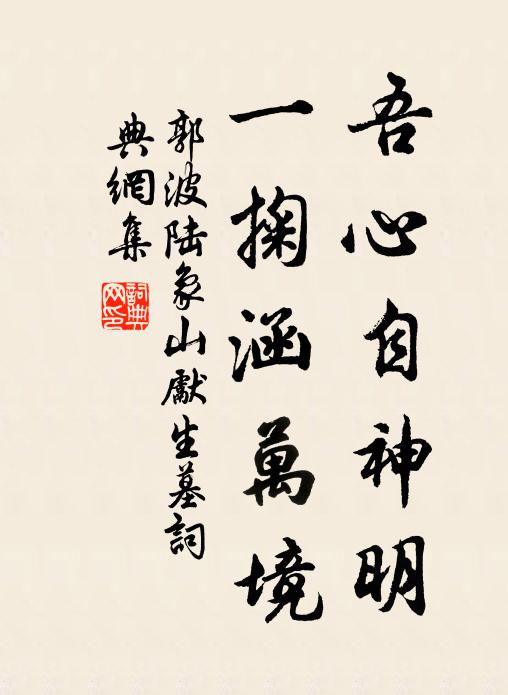 吾心自神明
一掬涵萬境
郭波陆象山獻生墓詞
典網集
詞典网印